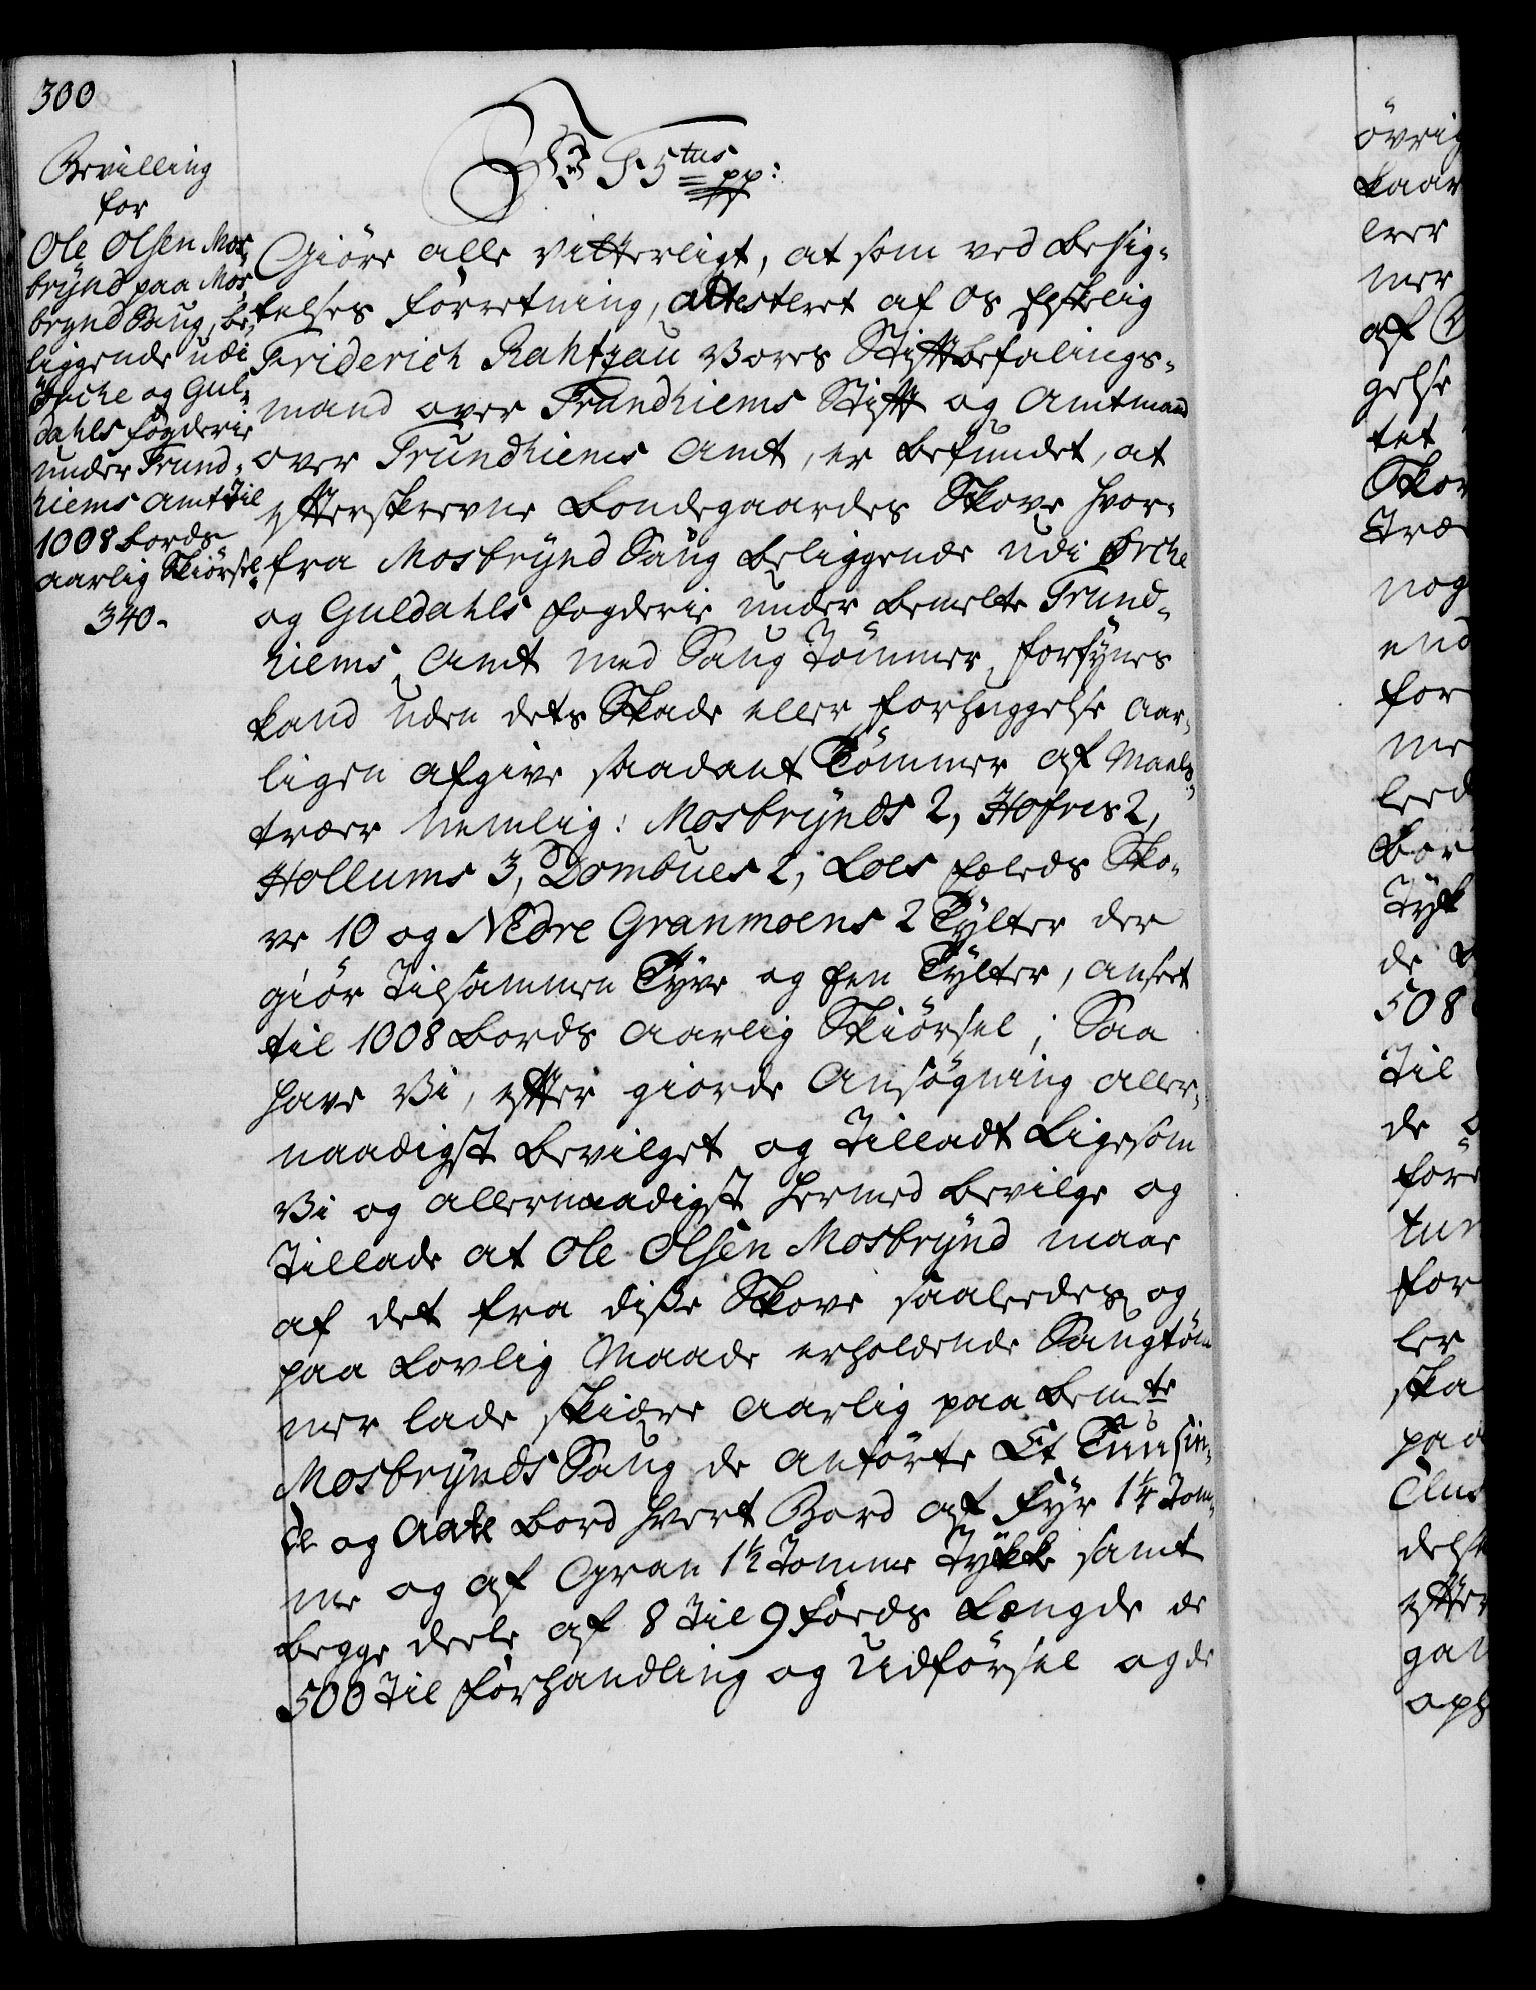 300
Bevilling
for
Ole Olsen Mos-
brÿnd paa Mos-
brynd Saug, be-
liggende udi
Örche og Gul-
dahls fogderie
under Trund-
hiems Amt til
1008 Bords
aarlig Skiörsel
340.
Vi F 5tus pp:
Giöre alle vitterligt, at som ved Besig-
telses forretning, attesteret af os Elskelig
Friderich Rahtzau Vores Stiftbefalings-
mand over Trundhiems Stift og Amtmand
over Trundhiems Amt, er befundet, at
efterskrevne Bondegaardes Skove hvor-
fra Mosbrÿnd Saug beliggende udi Örche
og Guldahls fogderie under bemelte Trund-
hiems Amt med Saug Tömmer forsÿnes
kand uden dets Skade eller forhuggelse aar-
ligen afgive saadant Tömmer af Maals-
træer nemlig: Mosbrÿnds 2, Hofves 2,
Hollums 3, Dombues 2, Loes fæleds Sko-
ve 10 og Nedre Granmoens 2 Tÿlter der
giör tilsammen Tÿve og Een Tÿlter, anseet
til 1008 Bords aarlig Skiörsel; Saa
have Vi, efter giorde Ansögning aller-
naadigst bevilget og tilladt Ligesom
Vi og allernaadigst hermed bevilge og
tillade at Ole Olsen Mosbrÿnd maae
af det fra diße Skove saaledes og
paa Lovlig Maade erholdende Saugtöm-
mer lade skiære aarlig paa bemte
Mosbrÿnds Saug de anförte Et Tuusin-
de og Aate Bord hvert Bord af Fÿr 1 1/4 Tom-
me og af Gran 1 1/2 Tomme Tÿkke samt
begge deele af 8 til 9 foeds Længde de
500 til forhandling og Udförsel og de
övrig
kaar
leer
mer
af B
gelse
tet
Skov
træ
nog
end
for
me
leed
Bor
Tÿk
de
508
til
de
före
tun
for
ler
ska
paa
delse
efter
gan
oph